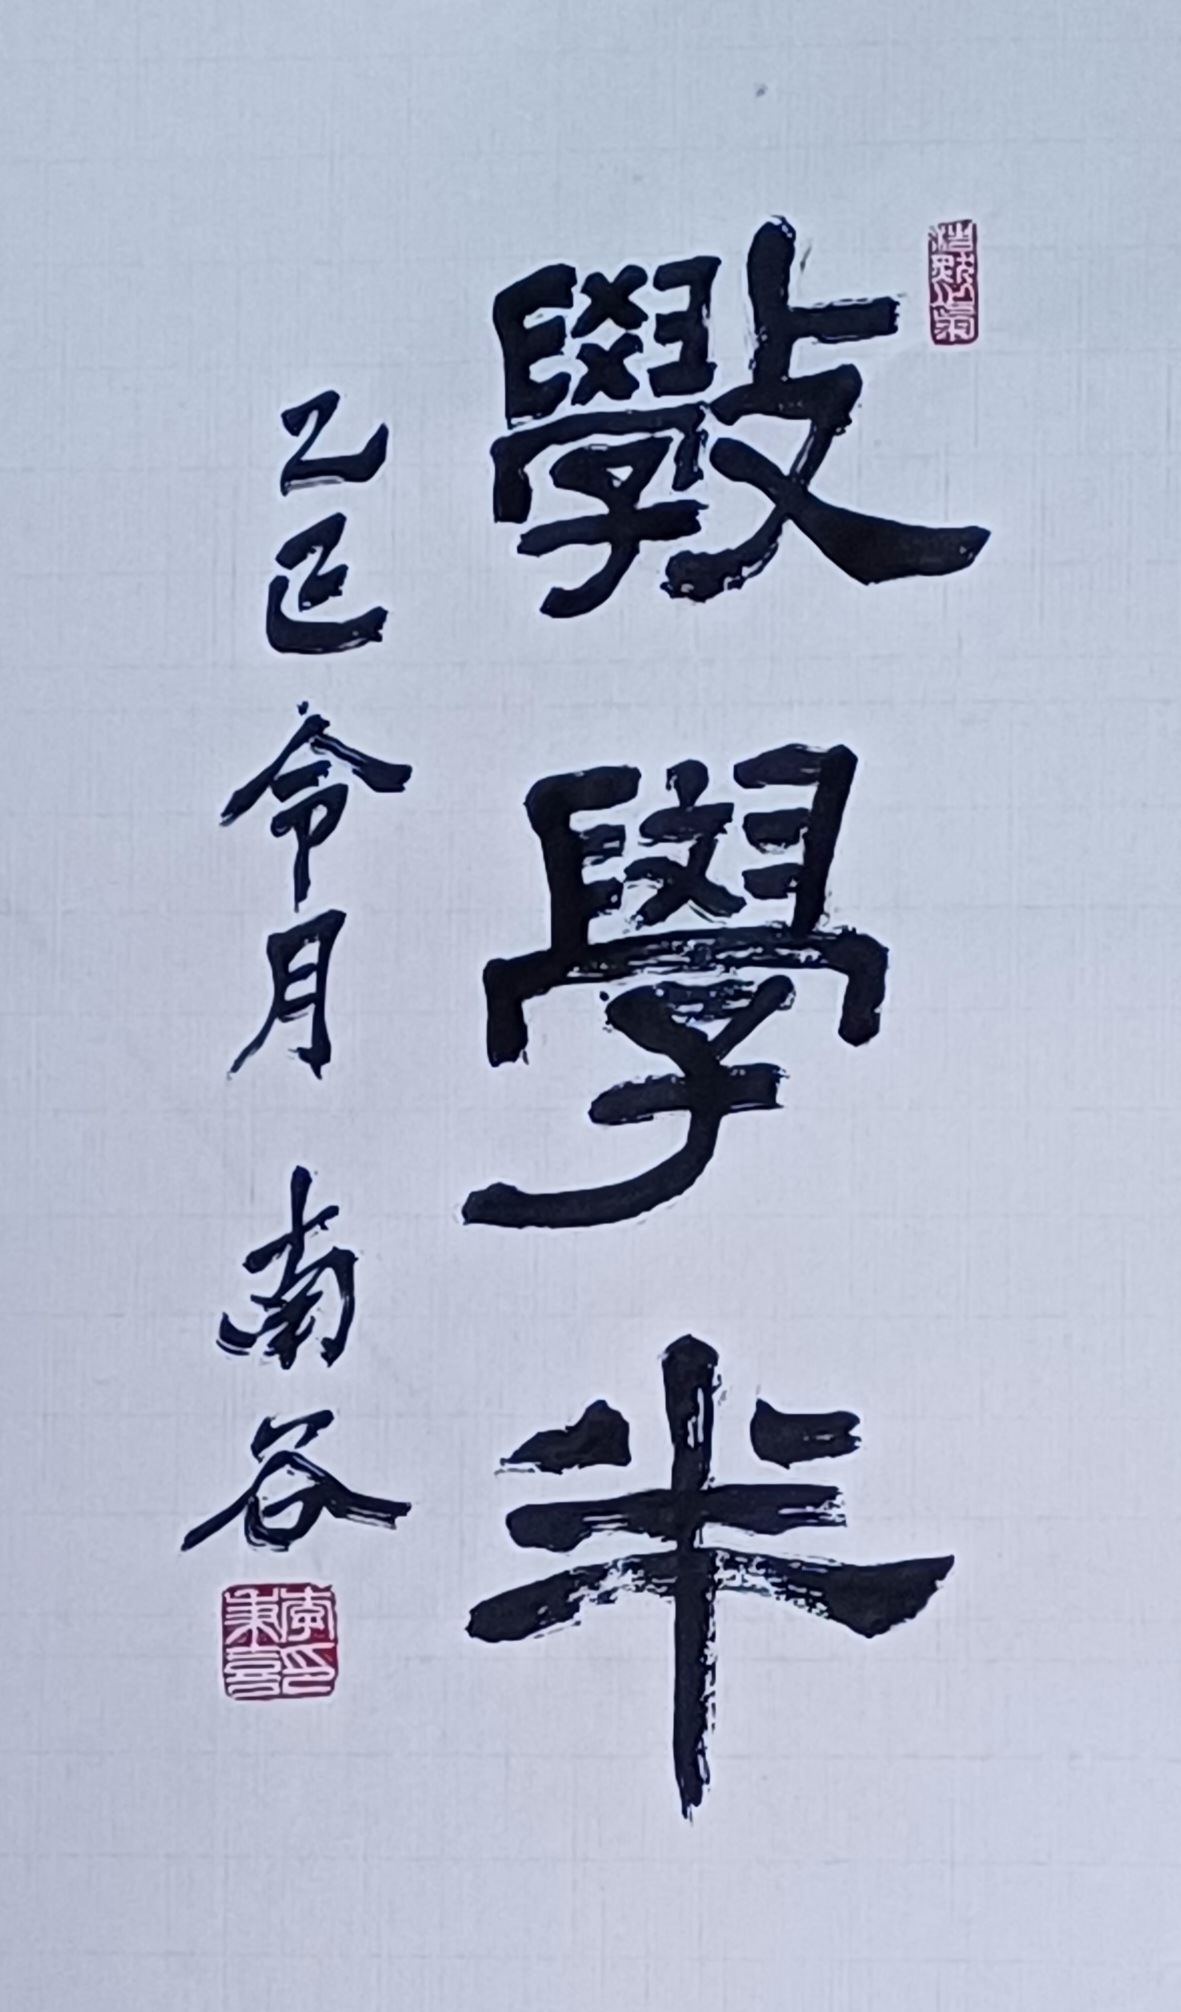 斅學半
乙巳令月 南谷